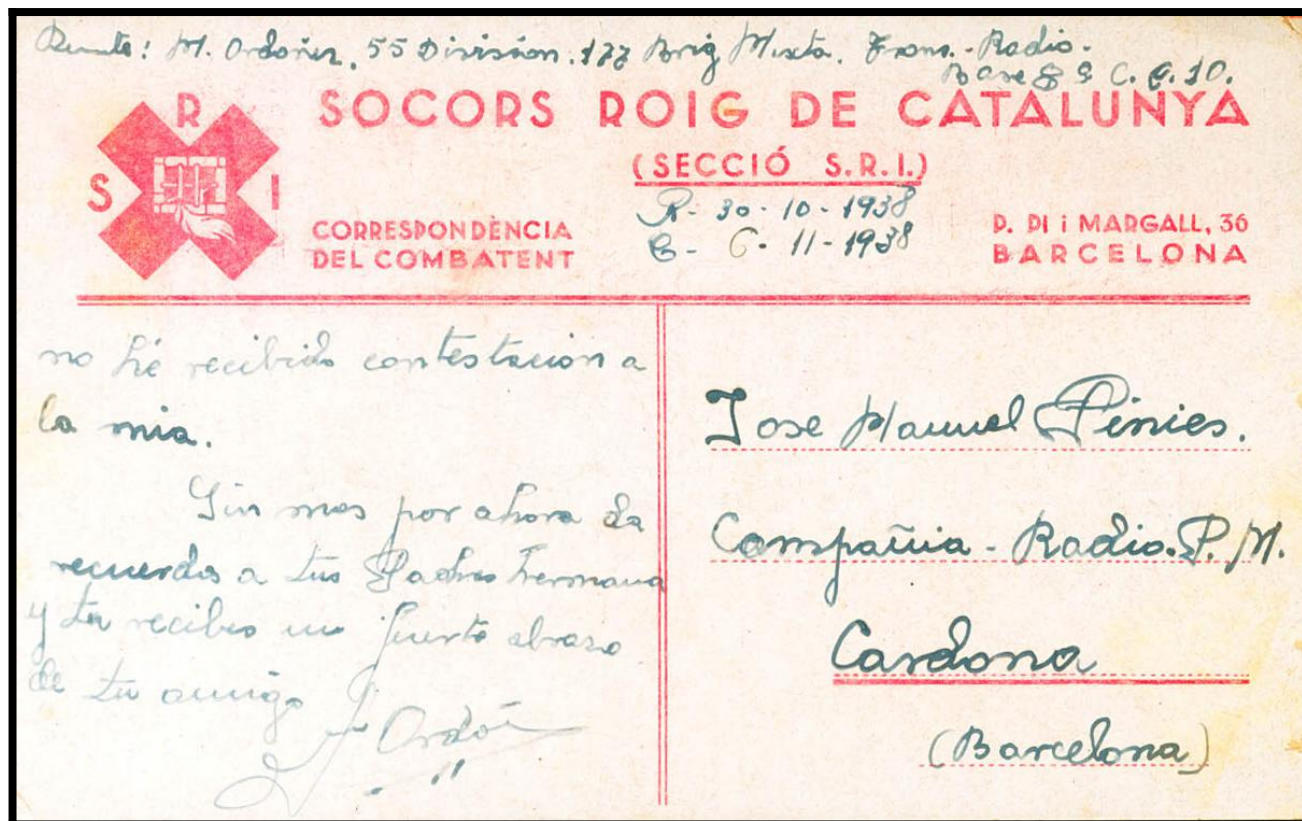 Remite: M. Ordoñez, 55 Division: 177 Brig Mixta. Trans.-Radio-
Base 8ª C. C. 10.
S R I
SOCORS ROIG DE CATALUNYA
(SECCIÓ S.R.I.)
CORRESPONDÈNCIA
DEL COMBATENT
R- 30-10-1938
C- 6-11-1938
P. PI i MARGALL, 36
BARCELONA
no hé recibido contestacion a
la mia.
Sin mas por ahora da
recuerdos a tus Padres hermana
y tu recibes un fuerte abrazo
de tu amigo
Jose Manuel Pinies.
Compañia - Radio. P. M.
Cardona
(Barcelona)